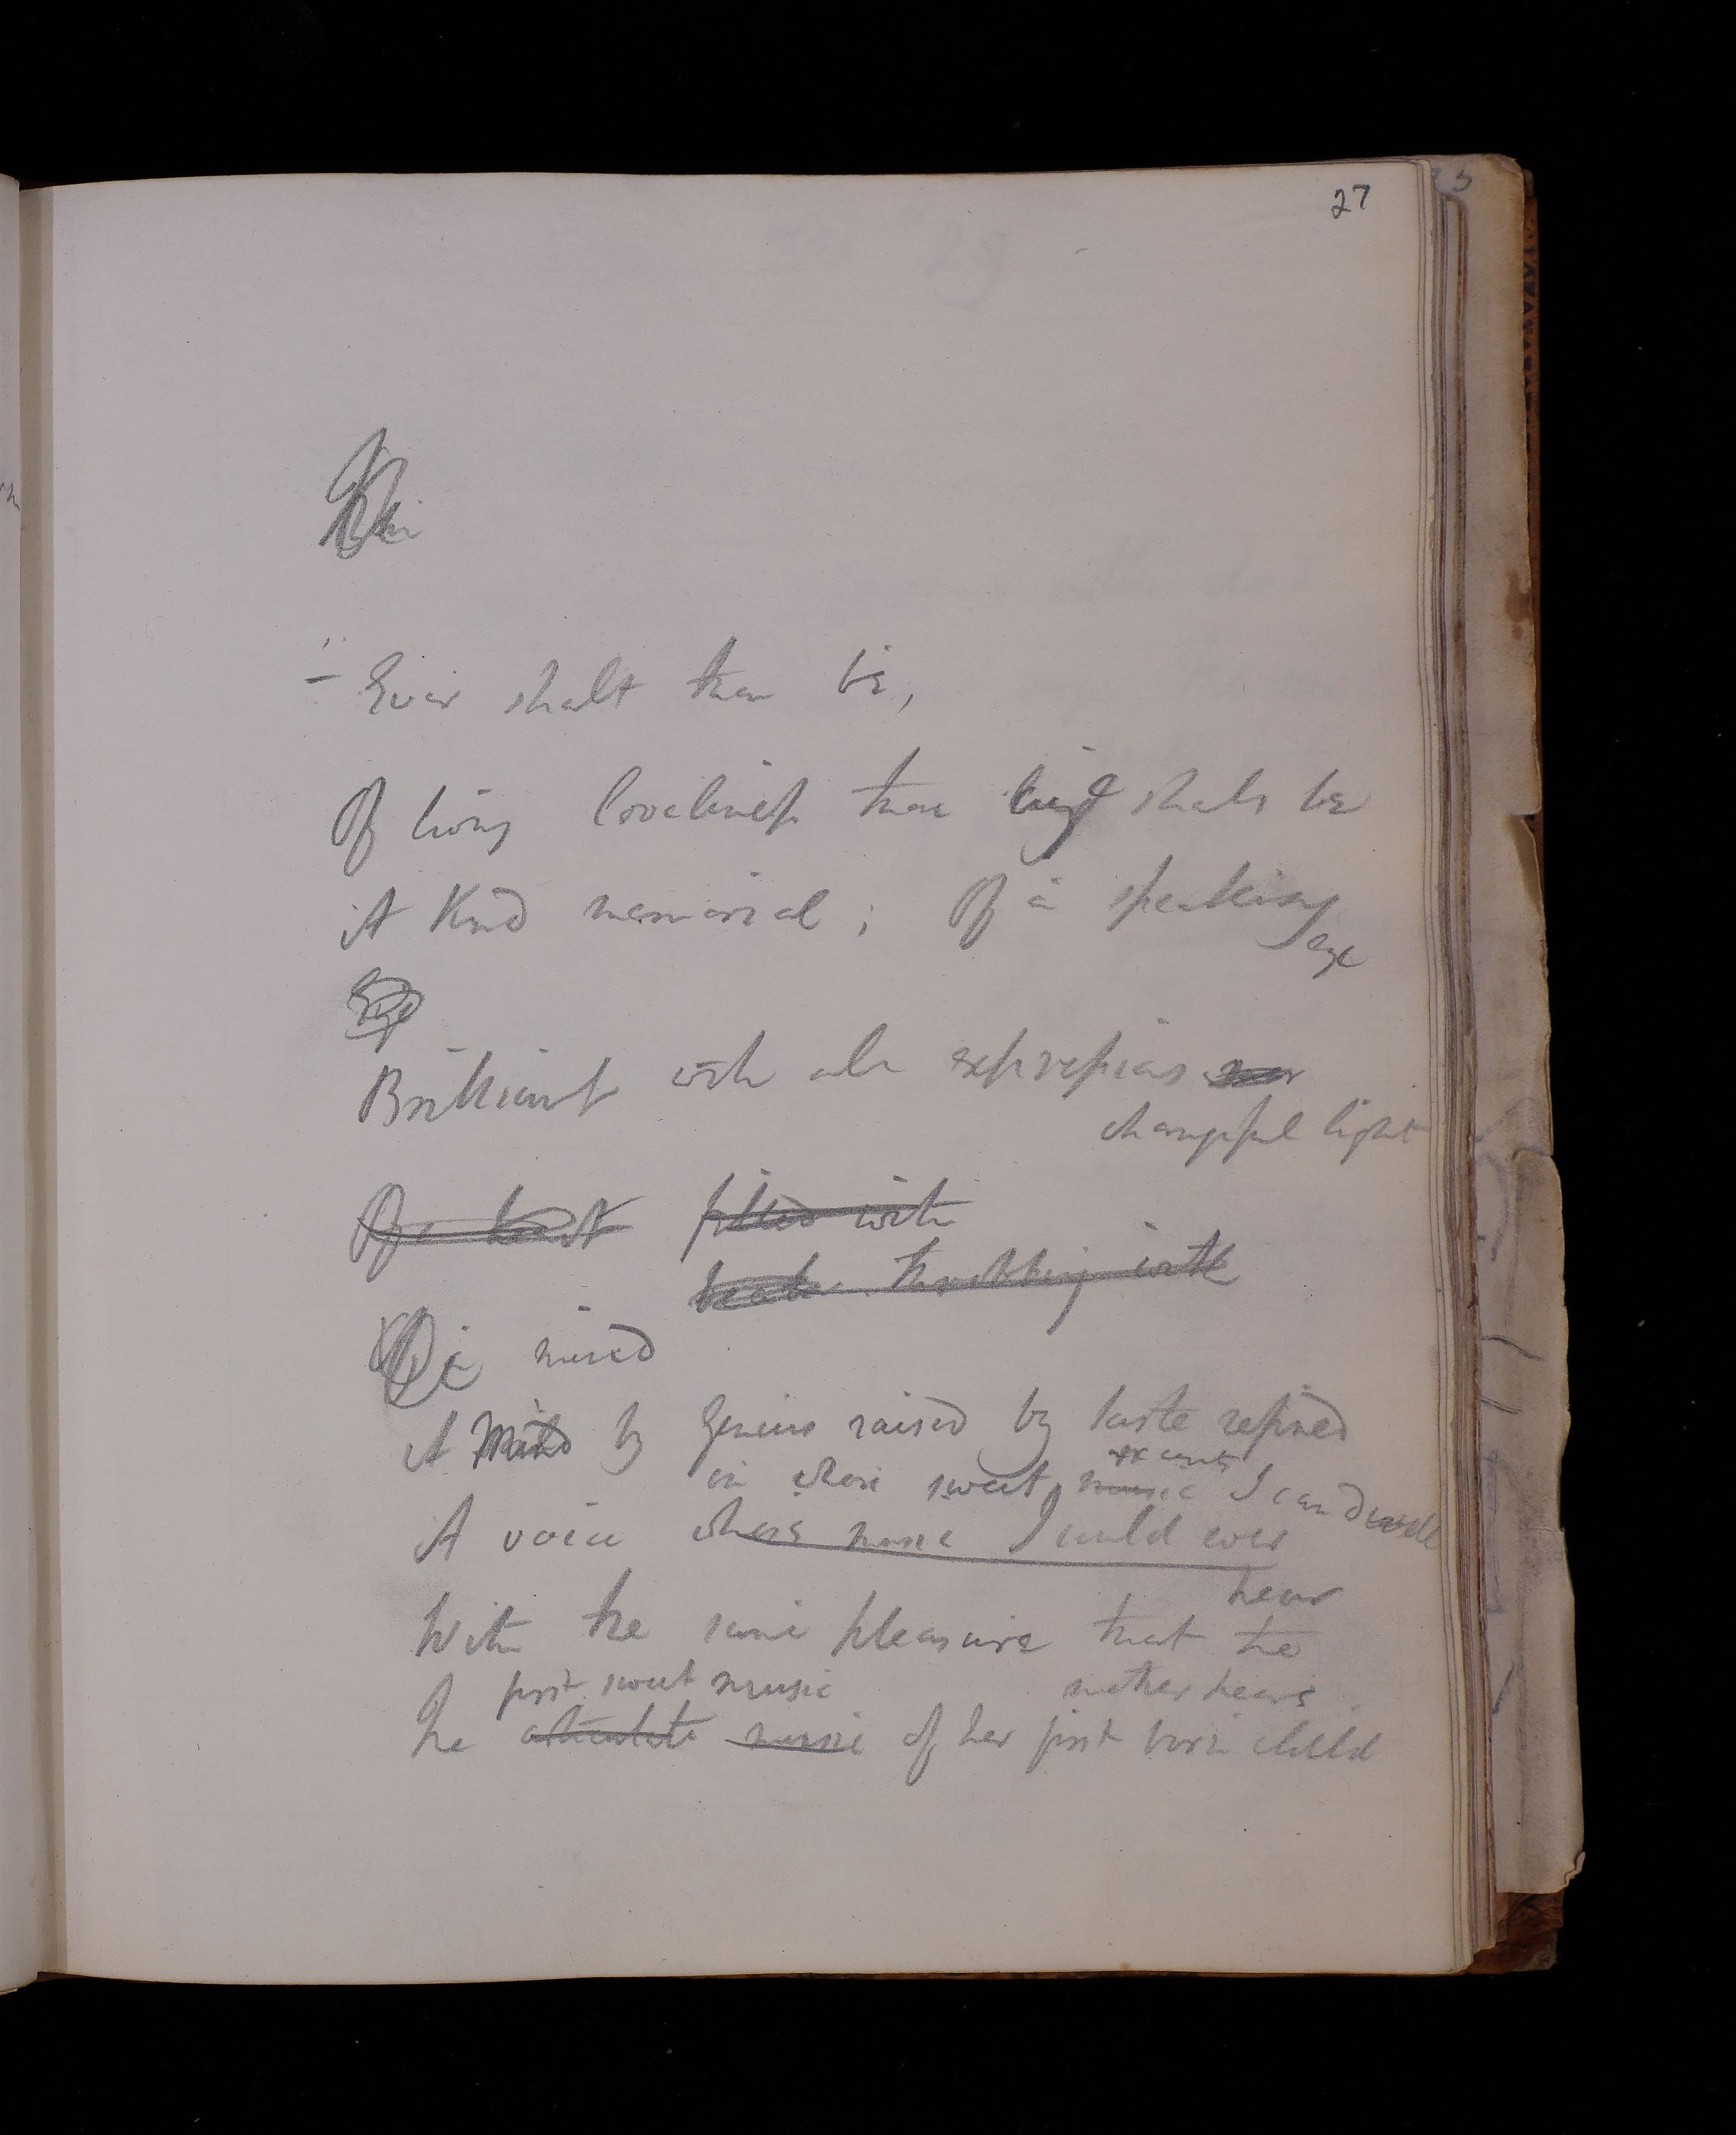 27
Ever shalt thou be,
Of living loveliness thou shalt be
A kind memorial; Of a speaking
eye
Eye
Brilliant with all expressions
changeful light
Of a heart filled with
throbbing with
Of a mind
A Mind by Genius raised by taste refined
on whose sweet accents music I can dwell
A voice whose music I could ever
hear
With the same pleasure that the
first sweet music mother hears
The articulate music of her first born child